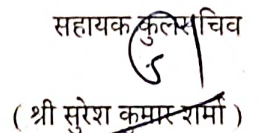 सहायक कुलसचिव
( श्री सुरेश कुमार शर्मा )